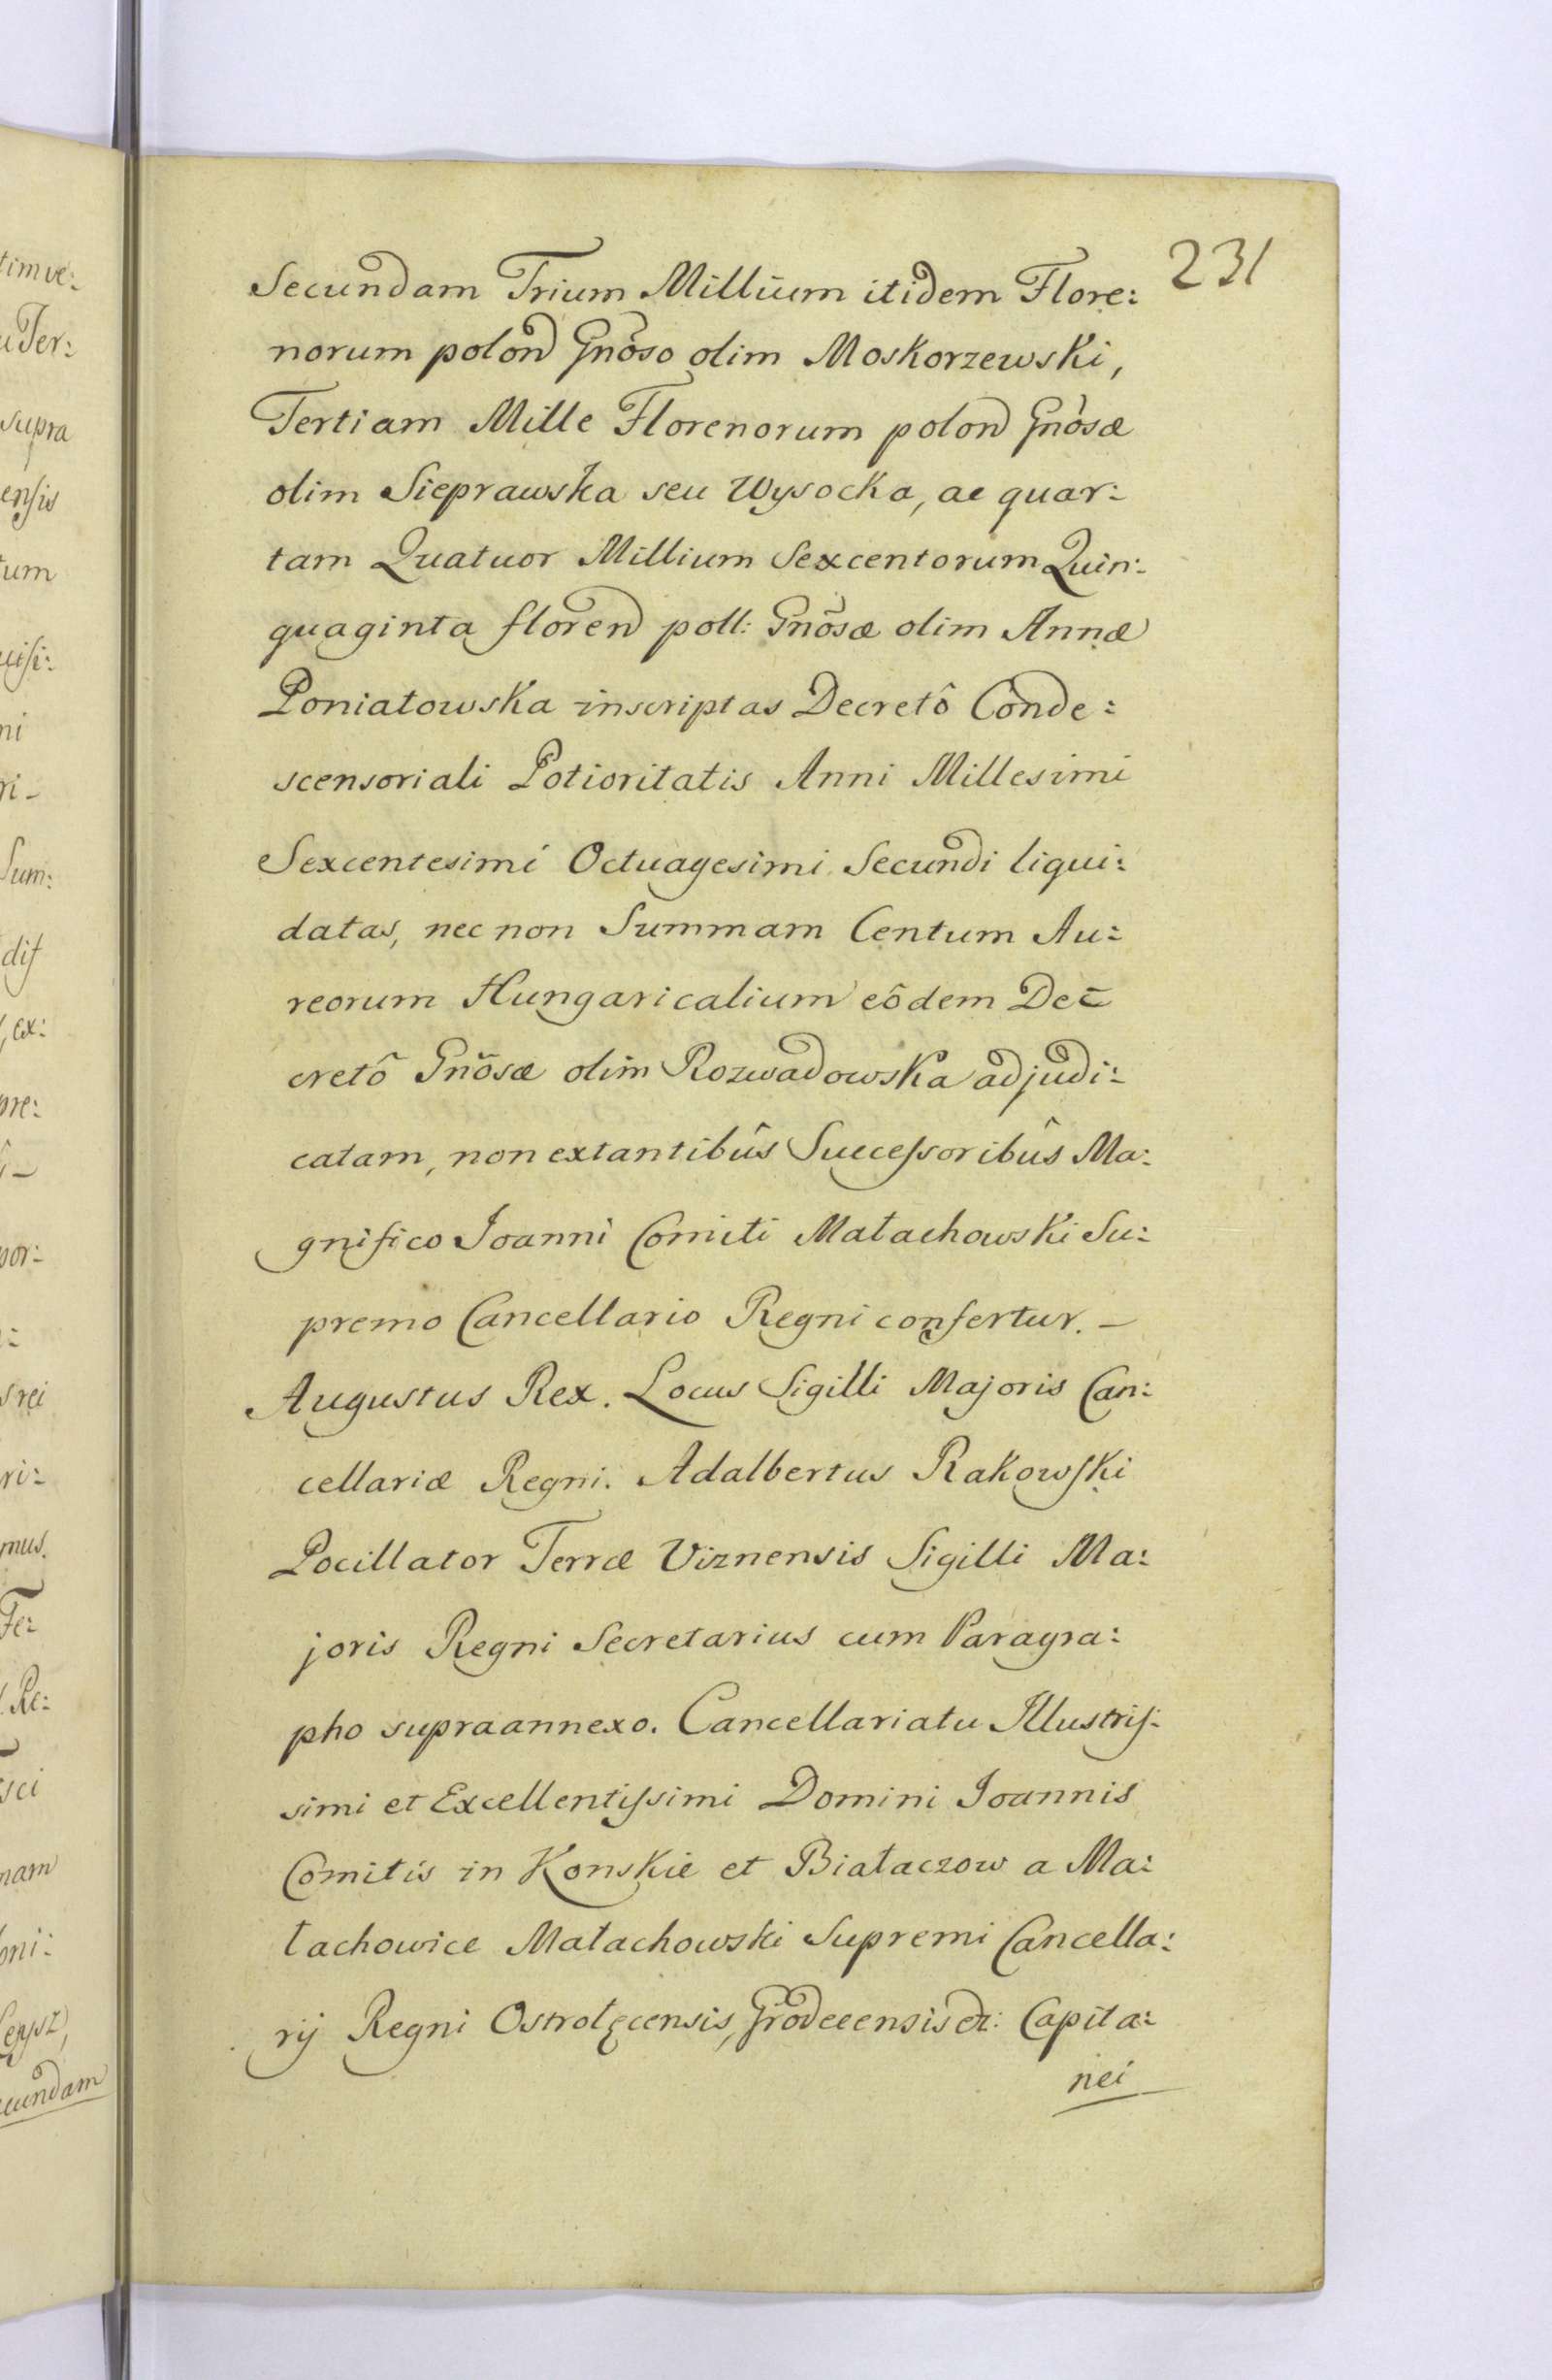 231
Secundam Trium Millium itidem Flore:
norum polon Gnõso olim Moskorzewski,
Tertiam Mille Florenorum polon Gnõsæ
olim Sieprawska seu Wysocka, ac quar:
tam Quatuor Millium Sexcentorum Quin:
quaginta floren poll: Gnõsæ olim Annæ
Poniatowska inscriptas Decretô Conde:
scensoriali Potioritatis Anni Millesimi
Sexcentesimi Octuagesimi Secundi liqui:
datas, nec non Summam Centum Au:
reorum Hungaricalium eôdem De:
cretô Gnõsæ olim Rozwadowska adjudi:
catam, non extantibûs Successoribûs Ma:
gnifico Joanni Comiti Małachowski Su:
premo Cancellario Regni confertur. –
Augustus Rex. Locus Sigilli Majoris Can:
cellariæ Regni. Adalbertus Rakowski
Pocillator Terræ Viznensis Sigilli Ma:
joris Regni Secretarius cum Paragra:
pho supraannexo. Cancellariatu Illustris:
simi et Excellentissimi Domini Joannis
Comitis in Konskie et Białaczow a Ma:
łachowice Małachowski Supremi Cancella:
rij Regni Ostrołęcensis, Grodecensis et: Capita:
nei